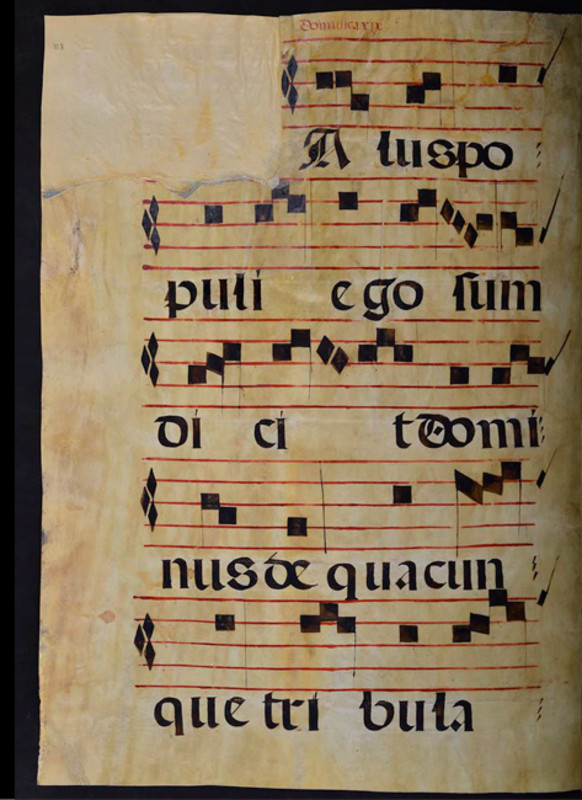 Dominica xix
A lus po
puli ego sum
di ci t Domi
nus de quacun
que tri bula